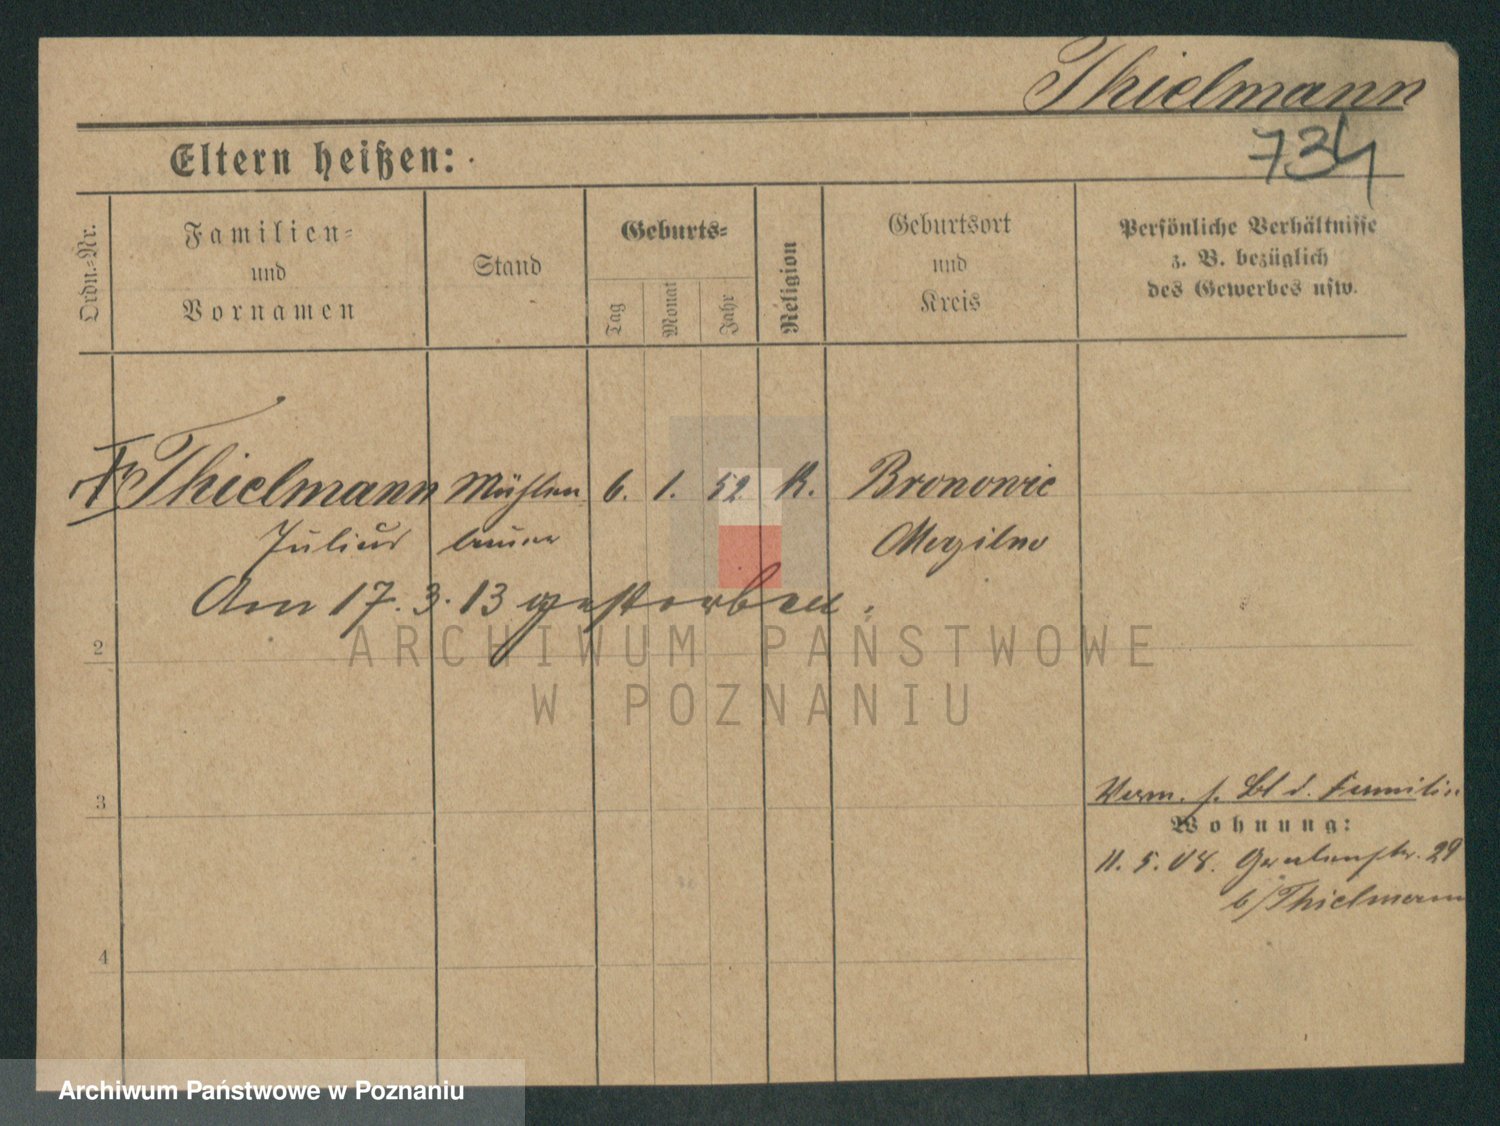 Thielmann
734
Eltern heißen:
Ordn.-Nr.
Familien-
und
Vornamen
Stand
Geburts-
Tag
Monat
Jahr
Religion
Geburtsort
und
Kreis
Persönliche Verhältnisse
z. B. bezüglich
des Gewerbes usw.
Thielmann Mühlen 6. 1. 52 K. Bronowic
Julius bauer Mogilno
Am 17. 3. 13 gestorben.
2
ARCHIWUM PAŃSTWOWE
W POZNANIU
3
Verm. s. Bl d. Familie
Wohnung:
11. 5. 08. 29
b/Thielmann
4
Archiwum Państwowe w Poznaniu